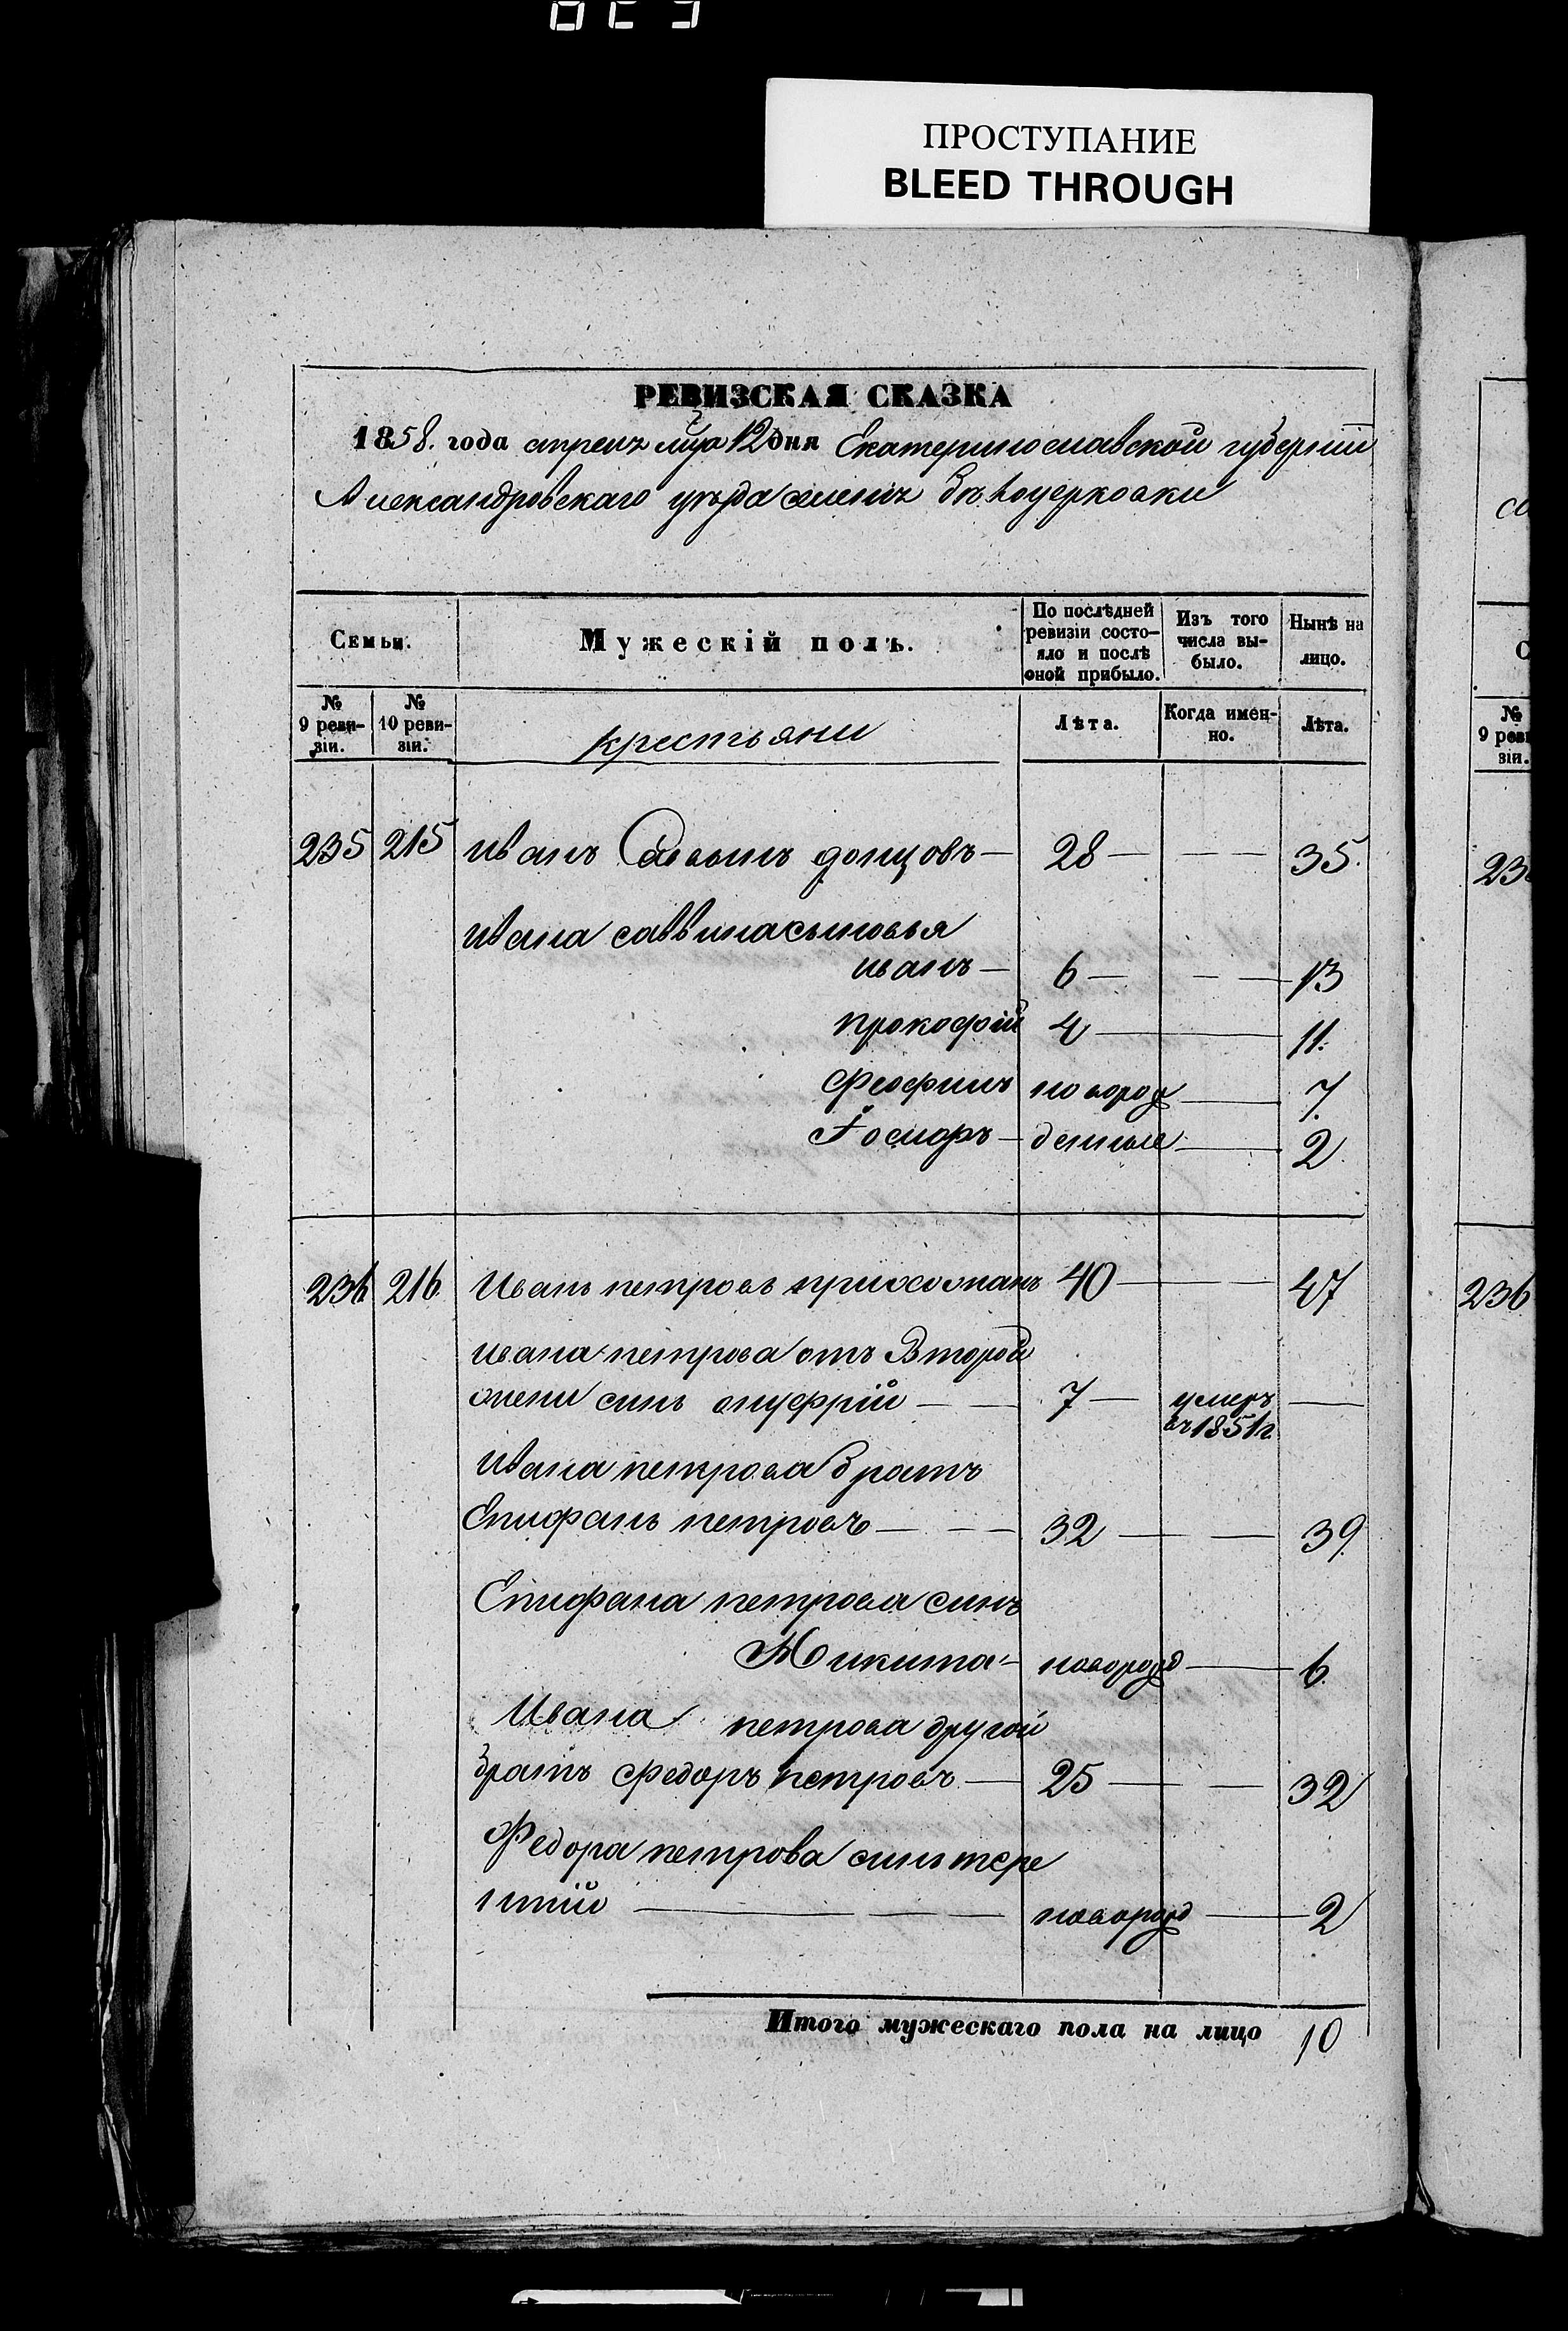 ПРОСТУПАНИЕ
BLEED THROUGH
РЕВИЗСКАЯ СКАЗКА
1858. года апреля мца 12 дня Екатеринославской губерніи
Александровскаго уѣзда селенія бѣлоцерковки
Семьи.
Мужескій полъ.
По послѣдней ревизіи состо-
яло и послѣ оной прибыло.
Изъ того числа вы-
было.
Нынѣ на лицо.
№ 9 реви-
зіи.
№ 10 реви-
зіи.
крестьяни
Лѣта.
Когда имен-
но.
Лѣта.
235 215 иванъ Саввинъ донцовъ — 28 — — 35.
ивана саввина сыновья
иванъ — 6 — — 13
прокофій 4 — 11.
Феофилъ новорож 7.
— денные 2
236 216 Иванъ петровъ 40 — — 47
ивана петрова отъ Второй
жени синъ онуфрій — — 7 — умеръ —
въ 1851 г.
ивана петрова братъ
Епифанъ петровъ — — 32 — — 39
Епифана петрова синъ
Никита — новорожд — 6
Ивана петрова другой
братъ федоръ петровъ — 25 — — 32
Федора петрова синъ тере
нтій — — — новорожд — 2
Итого мужескаго пола на лицо 10
со
С
№
9 реви
зіи.
23
236